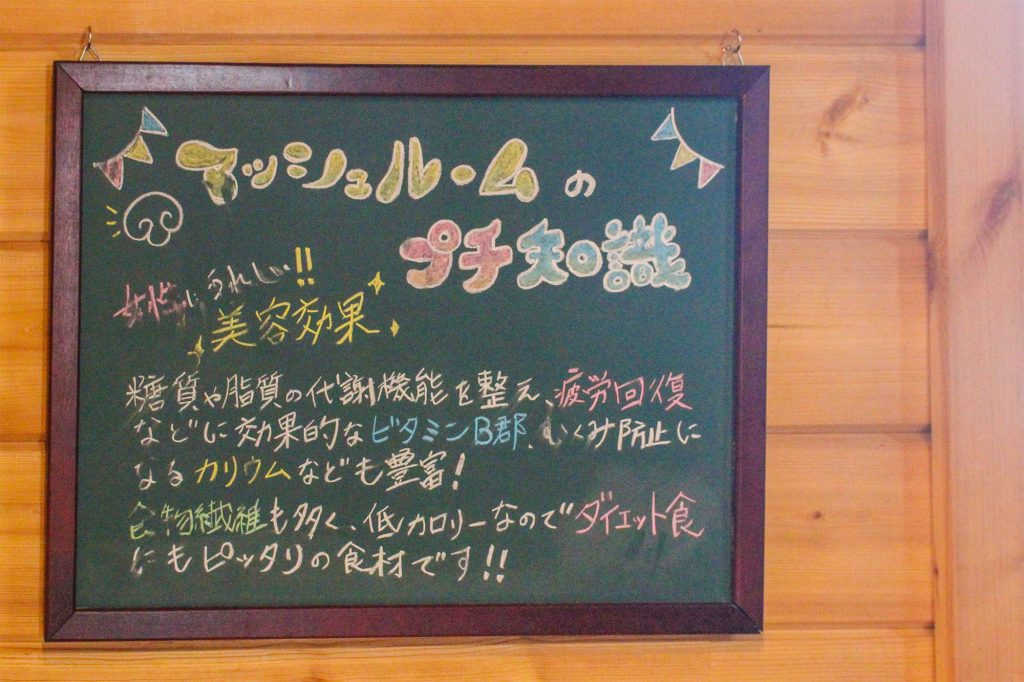 マッシュルームの
プチ知識
女性にうれしい!!
美容効果
糖質や脂質の代謝機能を整え、疲労回復
などに効果的なビタミンB郡、むくみ防止に
なるカリウムなども豊富!
食物繊維も多く、低カロリーなのでダイエット食
にもピッタリの食材です!!